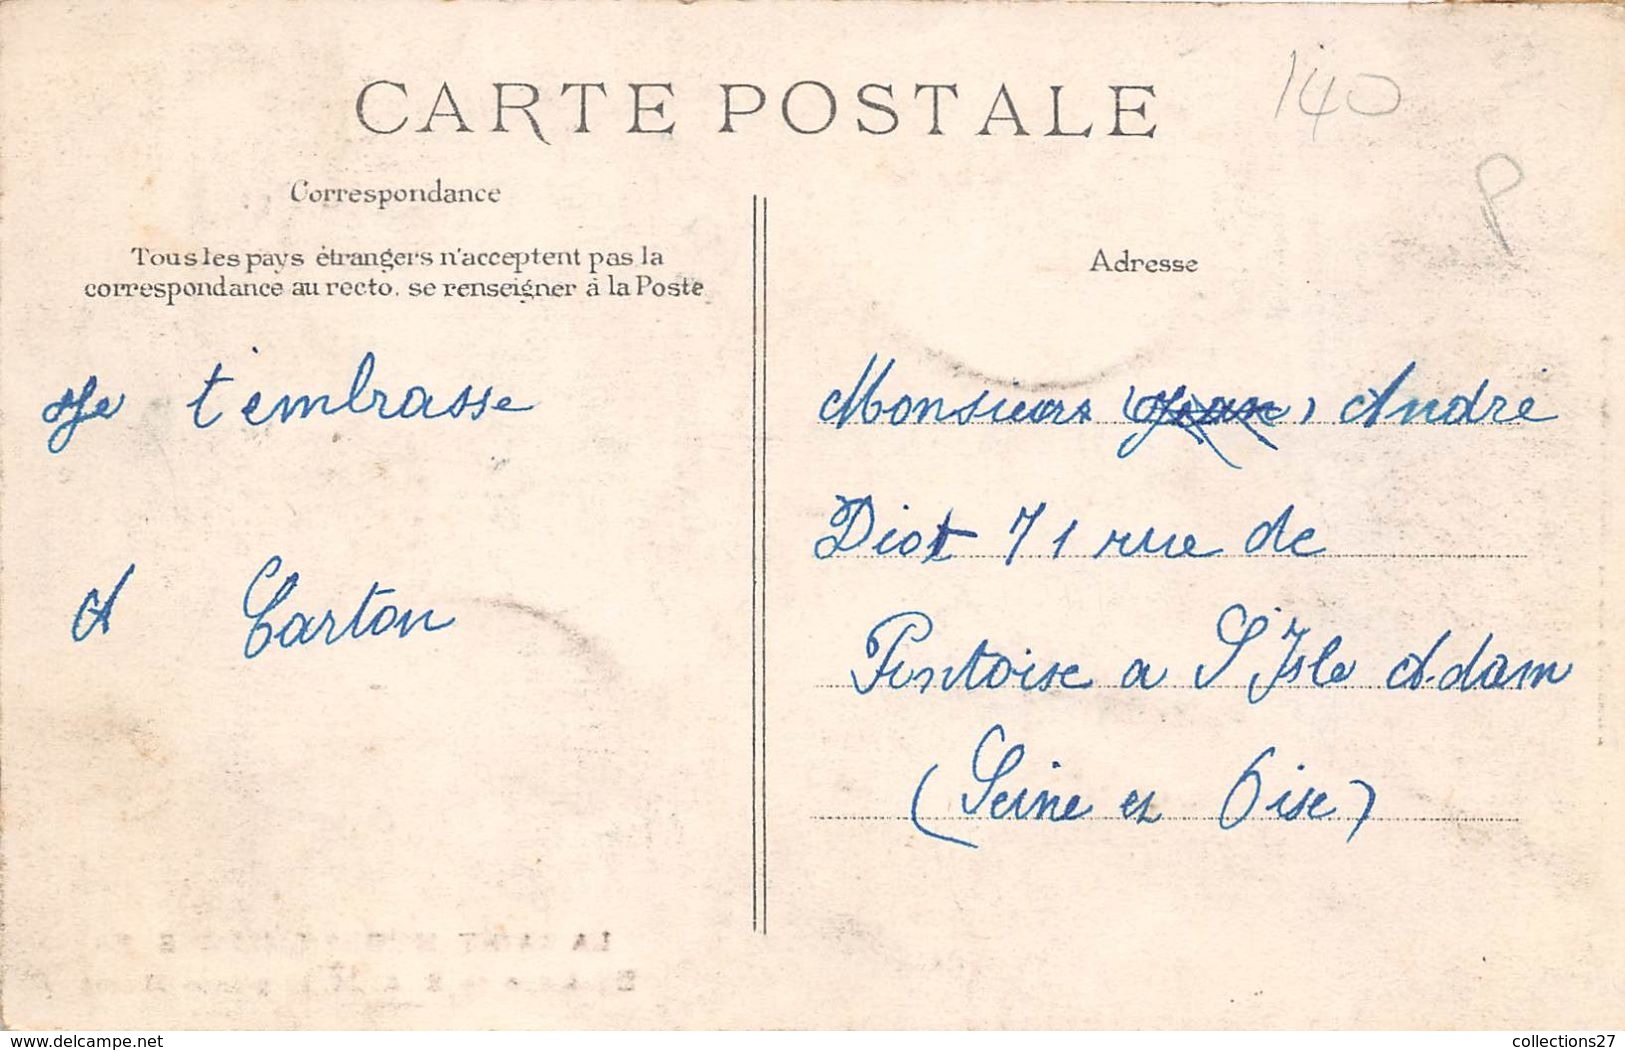 CARTE POSTALE
140
P
Correspondance
Tous les pays étrangers n'acceptent pas la
correspondance au recto, se renseigner à la Poste
Adresse
Je t'embrasse
A Carton
Monsieur (Jean) André
Diot 71 rue de
Pontoise a L'Isle Adam
(Seine et Oise)
www.delcampe.net
collections27